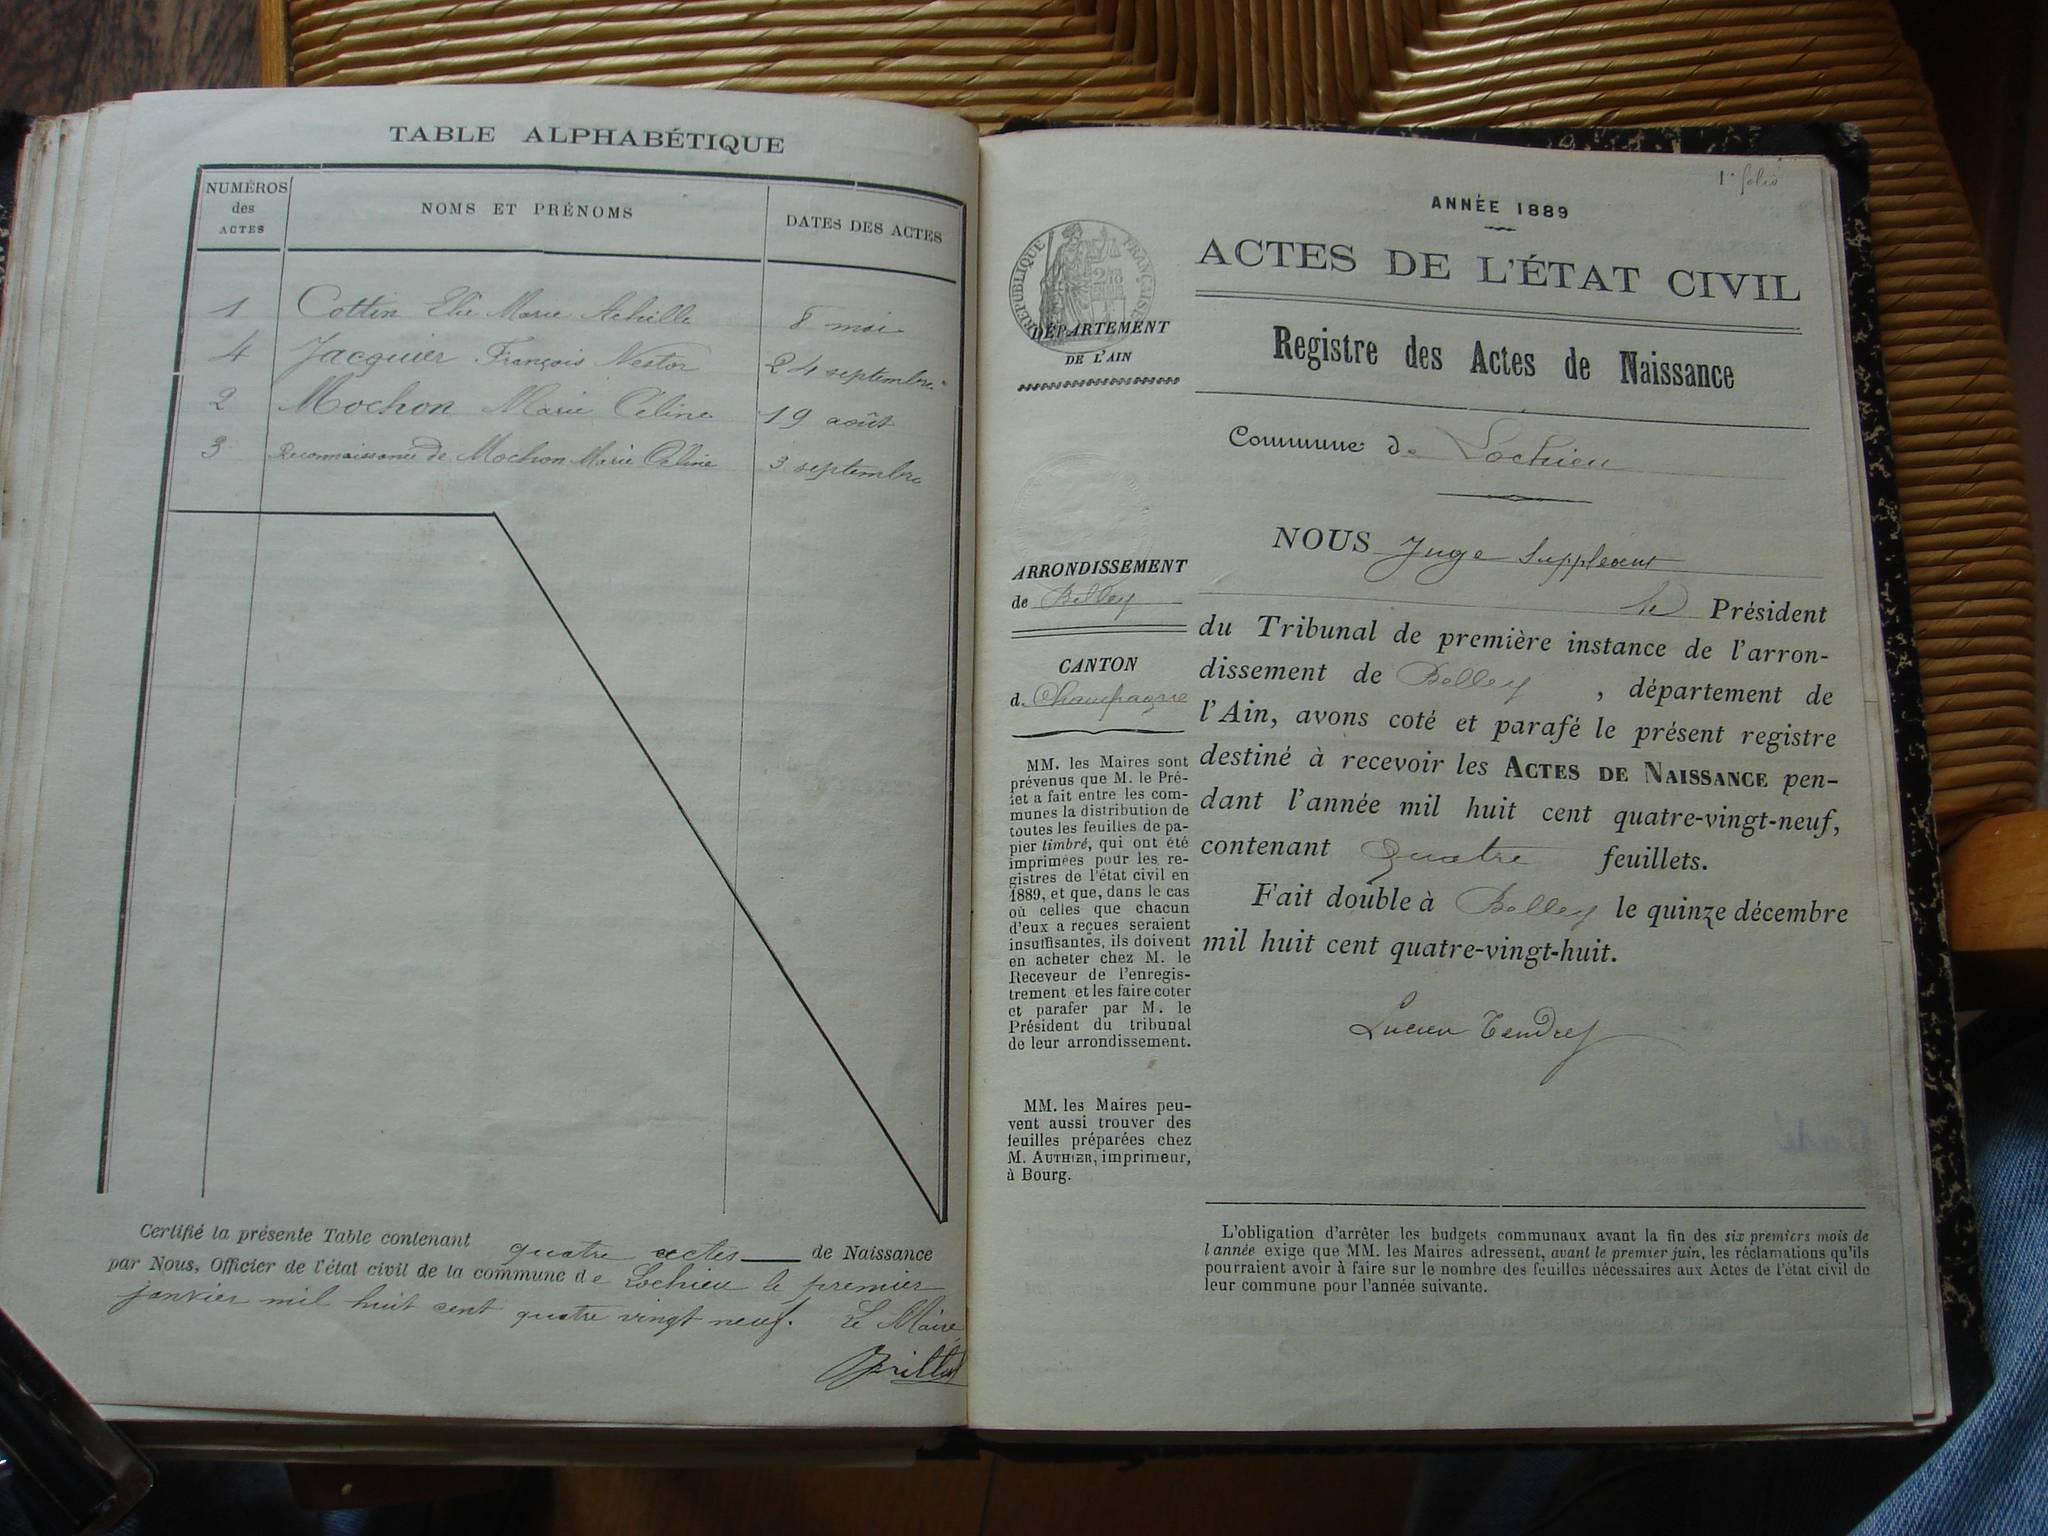 TABLE ALPHABÉTIQUE
NUMÉROS
des
ACTES
NOMS ET PRÉNOMS
DATES DES ACTES
1 Cottin Elie Marie Achille 8 mai
4 Jacquier François Nestor 24 septembre
2 Mochon Marie Céline 19 août
3 Reconnaissance de Mochon Marie Céline 3 septembre
Certifié la présente Table contenant quatre actes de Naissance
par Nous, Officier de l'état civil de la commune de Lochieu le premier
janvier mil huit cent quatre vingt neuf. Le Maire
1er folio
ANNÉE 1889
ACTES DE L'ÉTAT CIVIL
RÉPUBLIQUE FRANÇAISE
DÉPARTEMENT
DE L'AIN
Registre des Actes de Naissance
Commune de Lochieu
ARRONDISSEMENT
de Belley
CANTON
d. Champagne
MM. les Maires sont
prévenus que M. le Pré-
fet a fait entre les com-
munes la distribution de
toutes les feuilles de pa-
pier timbré, qui ont été
imprimées pour les re-
gistres de l'état civil en
1889, et que, dans le cas
où celles que chacun
d'eux a reçues seraient
insuffisantes, ils doivent
en acheter chez M. le
Receveur de l'enregis-
trement et les faire coter
et parafer par M. le
Président du tribunal
de leur arrondissement.
MM. les Maires peu-
vent aussi trouver des
feuilles préparées chez
M. AUTHIER, imprimeur,
à Bourg.
NOUS Juge Suppléant
Président
du Tribunal de première instance de l'arron-
dissement de Belley , département de
l'Ain, avons coté et parafé le présent registre
destiné à recevoir les ACTES DE NAISSANCE pen-
dant l'année mil huit cent quatre-vingt-neuf,
contenant quatre feuillets.
Fait double à Belley le quinze décembre
mil huit cent quatre-vingt-huit.
Lucien Tendret
L'obligation d'arrêter les budgets communaux avant la fin des six premiers mois de
l'année exige que MM. les Maires adressent, avant le premier juin, les réclamations qu'ils
pourraient avoir à faire sur le nombre des feuilles nécessaires aux Actes de l'état civil de
leur commune pour l'année suivante.